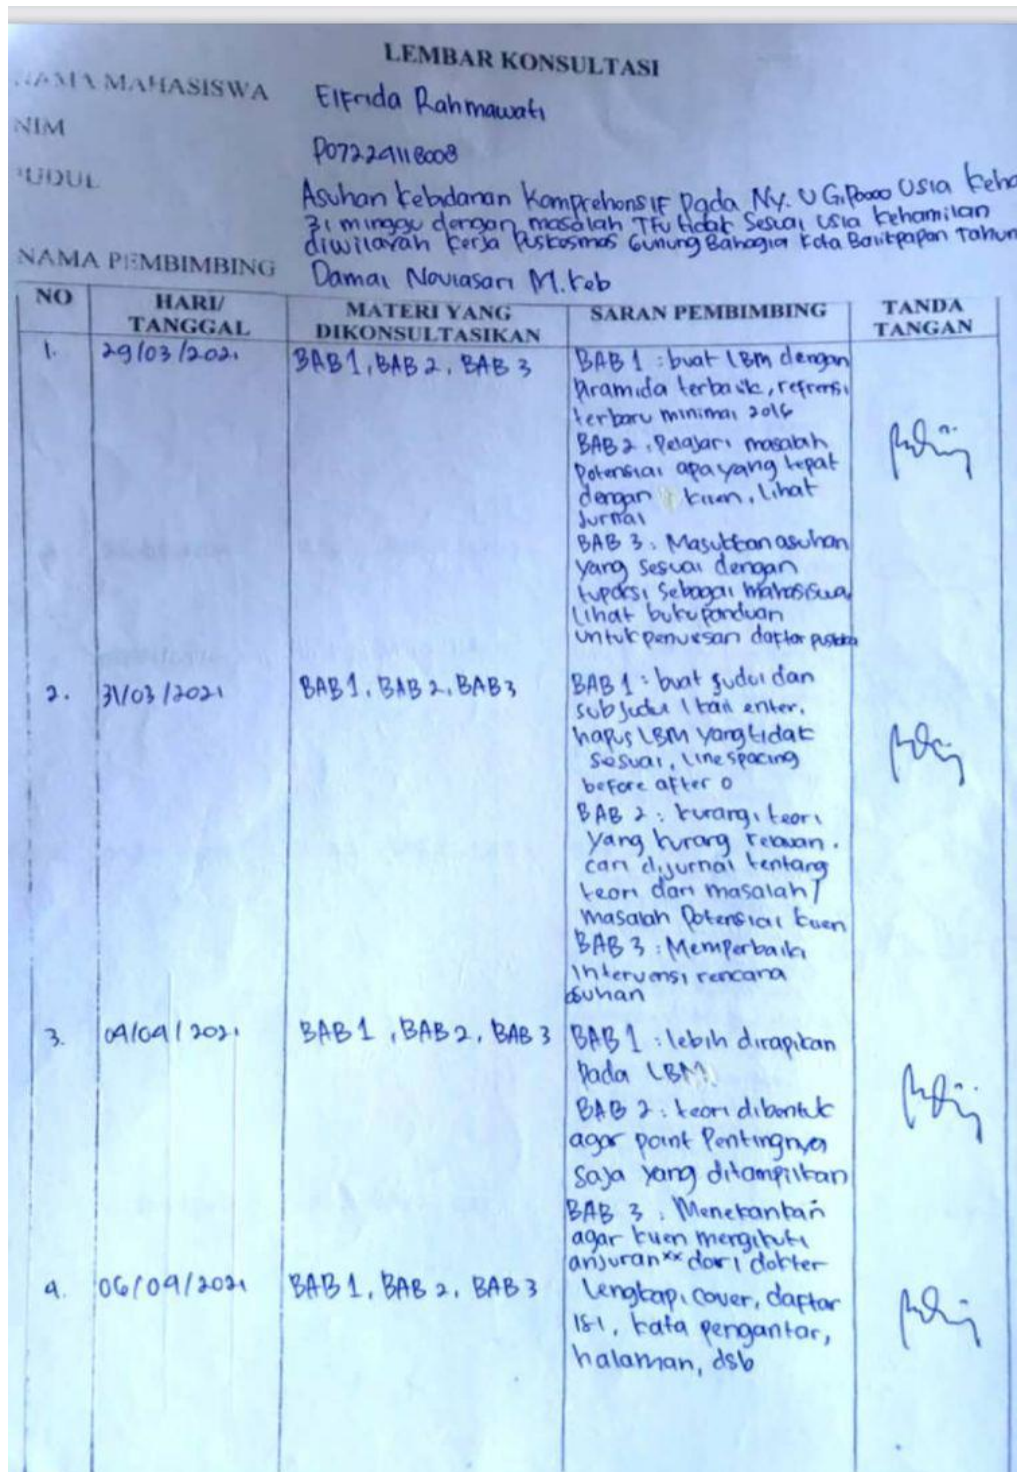 LEMBAR KONSULTASI
NAMA MAHASISWA Elfrida Rahmawati
NIM P07224118008
JUDUL Asuhan Kebidanan Komprehensif Pada Ny. U G1P0000 Usia Keha
31 minggu dengan masalah TFU tidak Sesuai usia kehamilan
diwilayah kerja Puskesmas Gunung Bahagia Kota Balikpapan Tahun
NAMA PEMBIMBING Damai Noviasari M.Keb
NO HARI/ TANGGAL MATERI YANG DIKONSULTASIKAN SARAN PEMBIMBING TANDA TANGAN
1. 29/03/2021 BAB 1, BAB 2, BAB 3 BAB 1 : buat LBM dengan
Piramida terbalik, refrensi
terbaru minimal 2016
BAB 2 : Pelajari masalah
Potensial apa yang tepat
dengan klien, lihat
Jurnal
BAB 3 : Masukkan asuhan
yang sesuai dengan
tupoksi Sebagai mahasiswa,
Lihat buku panduan
untuk penulisan daftar pustaka
2. 31/03/2021 BAB 1, BAB 2, BAB 3 BAB 1 : buat judul dan
sub judul 1 kali enter,
hapus LBM yang tidak
sesuai, Line spacing
before after 0
BAB 2 : kurangi teori
yang kurang relavan.
cari dijurnal tentang
teori dari masalah/
masalah Potensial klien
BAB 3 : Memperbaiki
Intervensi rencana
asuhan
3. 04/04/2021 BAB 1, BAB 2, BAB 3 BAB 1 : lebih dirapikan
Pada LBM
BAB 2 : teori dibentuk
agar point Pentingnya
Saja yang ditampilkan
BAB 3 : Menekankan
agar klien mengikuti
anjuran** dari dokter
4. 06/04/2021 BAB 1, BAB 2, BAB 3 Lengkapi cover, daftar
isi, kata pengantar,
halaman, dsb